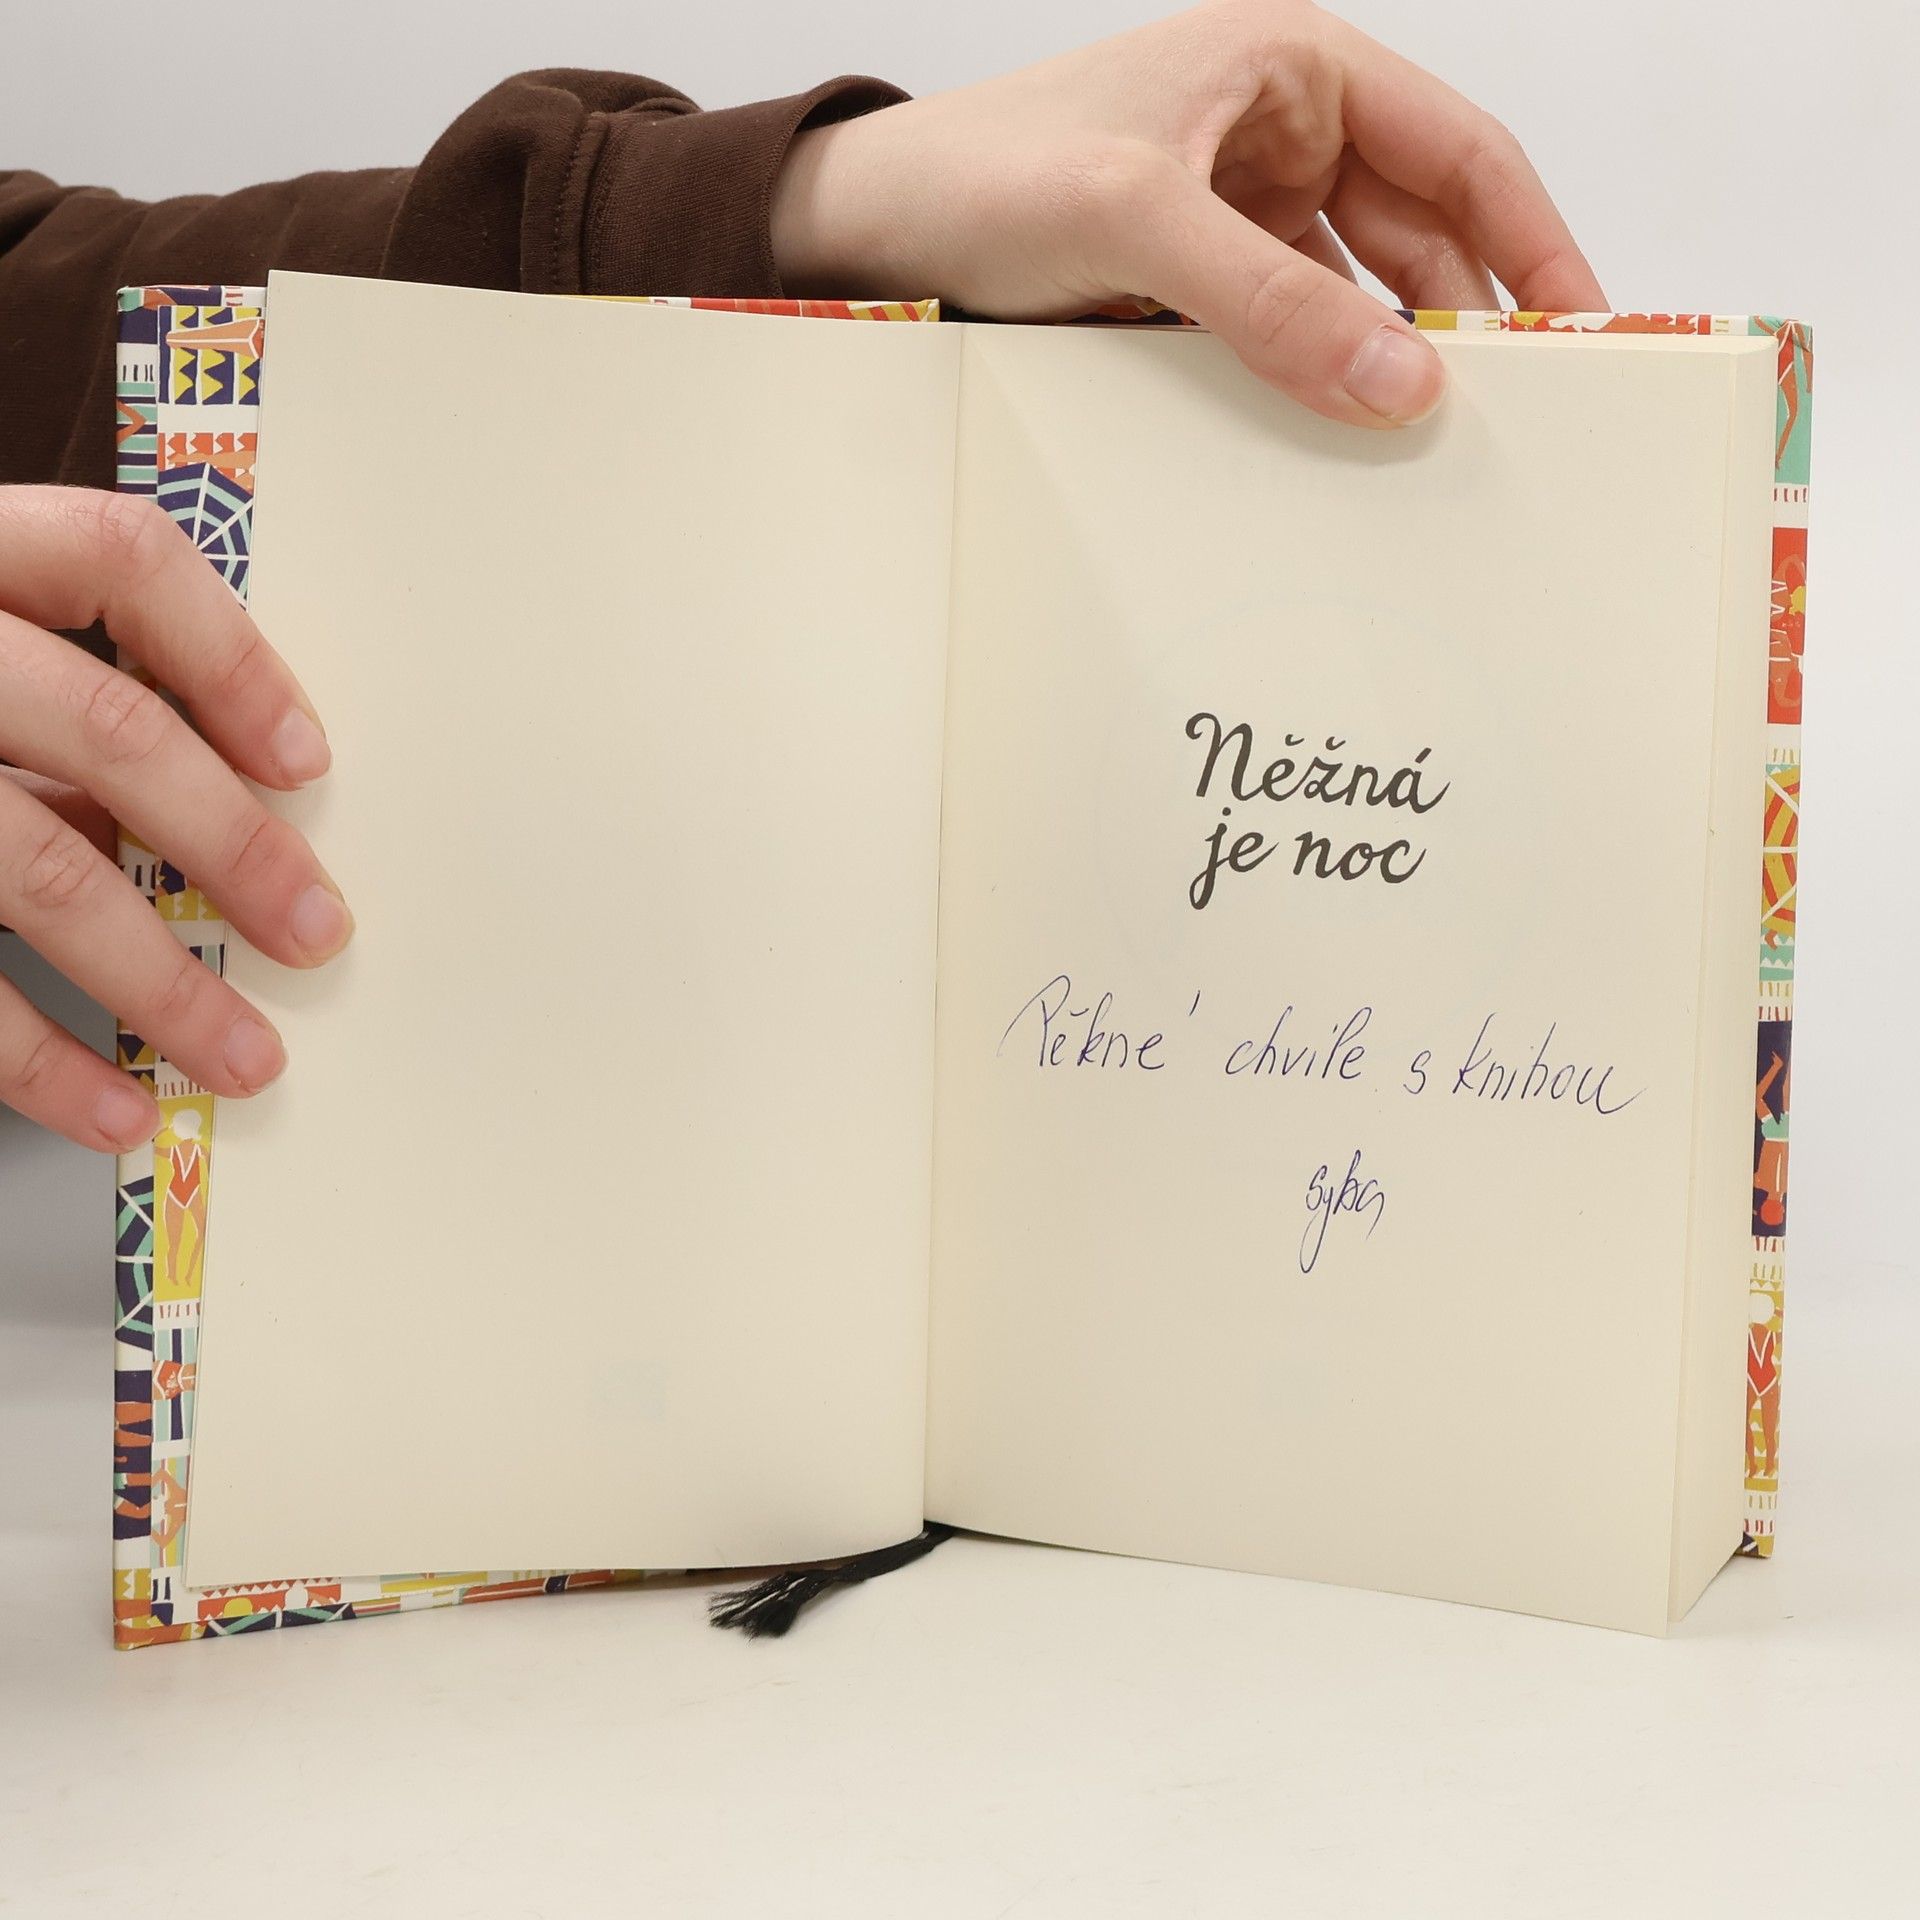 Něžná
je noc
Pěkné chvíle s knihou